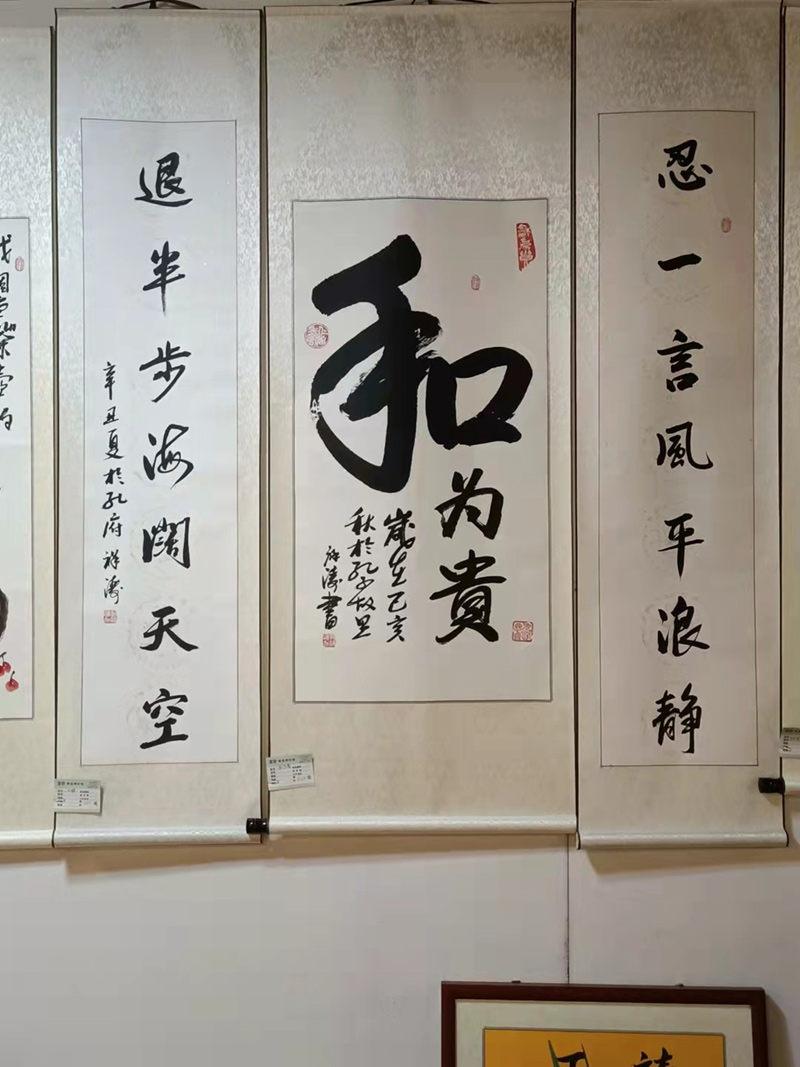 忍一言風平浪静
和
为貴
歲在己亥
秋於孔子故里
祥濤書
退半步海闊天空
辛丑夏於孔府祥濤